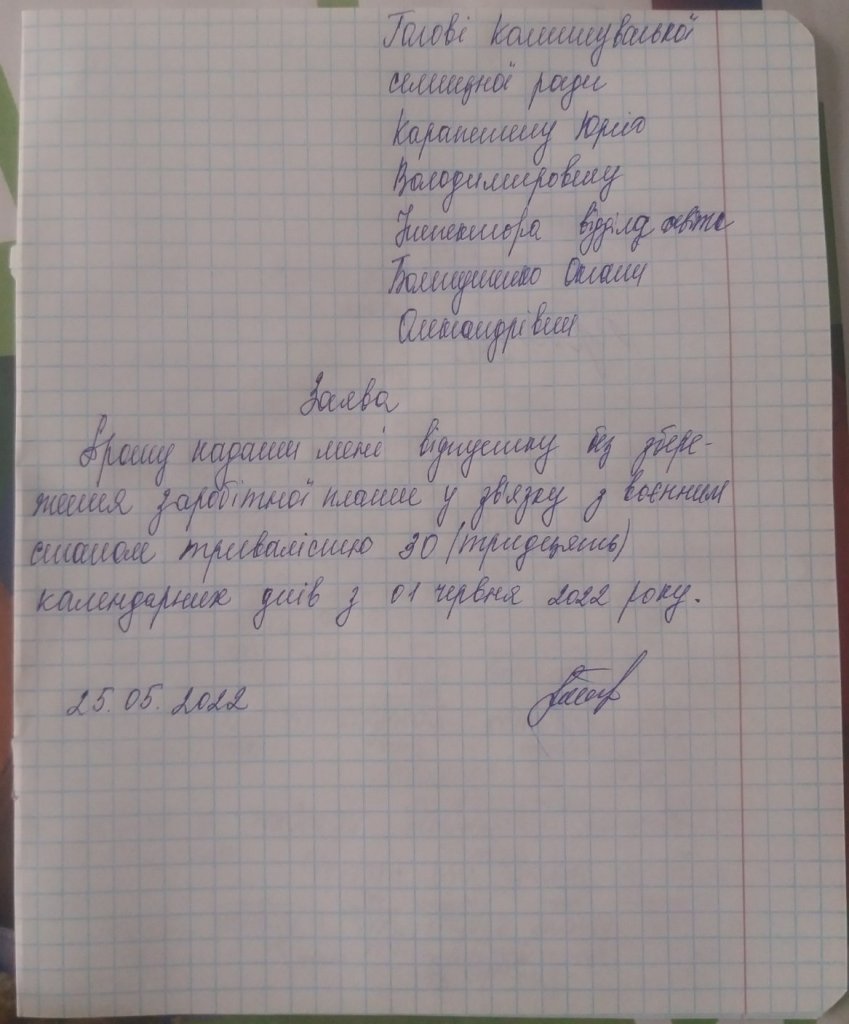 Голові Комишуваської
селищної ради
Карапетяну Юрію
Володимировичу
Інспектора відділу освіти
Оксани
Олександрівни
Заява
Прошу надати мені відпустку без збере-
ження заробітної плати у зв'язку з воєнним
станом тривалістю 30 (тридцять)
календарних днів з 01 червня 2022 року.
25.05.2022